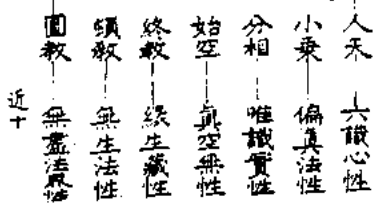 人天——六識心性
小乗——偏真法性
分相——唯識實性
始空——眞空無性
終教——緣生藏性
頓教——無生法性
圓教——無盡法界性
近十